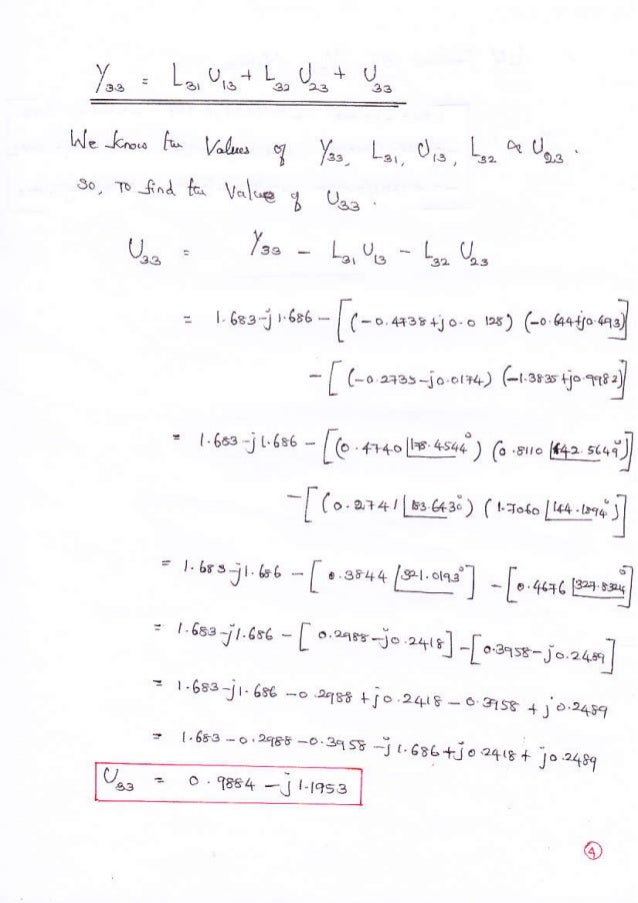 Y33 = L31 U13 + L32 U23 + U33
We know the Values of Y33, L31, U13, L32 & U23.
So, To find the Value of U33.
U33 = Y33 - L31 U13 - L32 U23
= 1.683-j1.686 - [(-0.4738+j0.0128) (-0.644+j0.493)]
- [(-0.2735-j0.0174) (-1.3835+j0.9982)]
= 1.683-j1.686 - [(0.4740∠178.4544°) (0.8110∠142.5649°)]
- [(0.2741∠183.6436°) (1.7060∠144.1894°)]
= 1.683-j1.686 - [0.3844∠321.0193°] - [0.4676∠327.8324°]
= 1.683-j1.686 - [0.2988-j0.2418] - [0.3958-j0.2489]
= 1.683-j1.686 -0.2988+j0.2418 -0.3958+j0.2489
= 1.683-0.2988-0.3958-j1.686+j0.2418+j0.2489
U33 = 0.9884-j1.1953
4